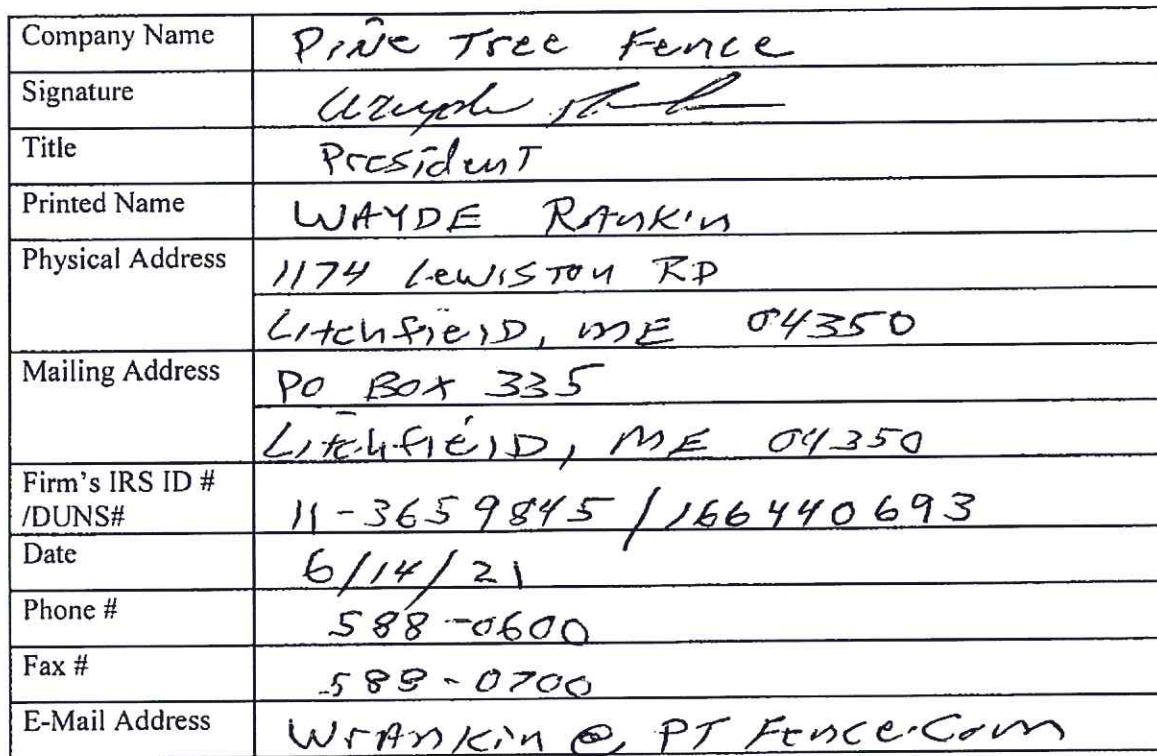 Company Name Pine Tree Fence
Signature
Title President
Printed Name WAYDE Rankin
Physical Address 1174 Lewiston RD
Litchfield, ME 04350
Mailing Address PO BOX 335
Litchfield, ME 04350
Firm's IRS ID #
/DUNS# 11-3659845 / 166440693
Date 6/14/21
Phone # 588-0600
Fax # 588-0700
E-Mail Address WrAnkin @ PT Fence.Com